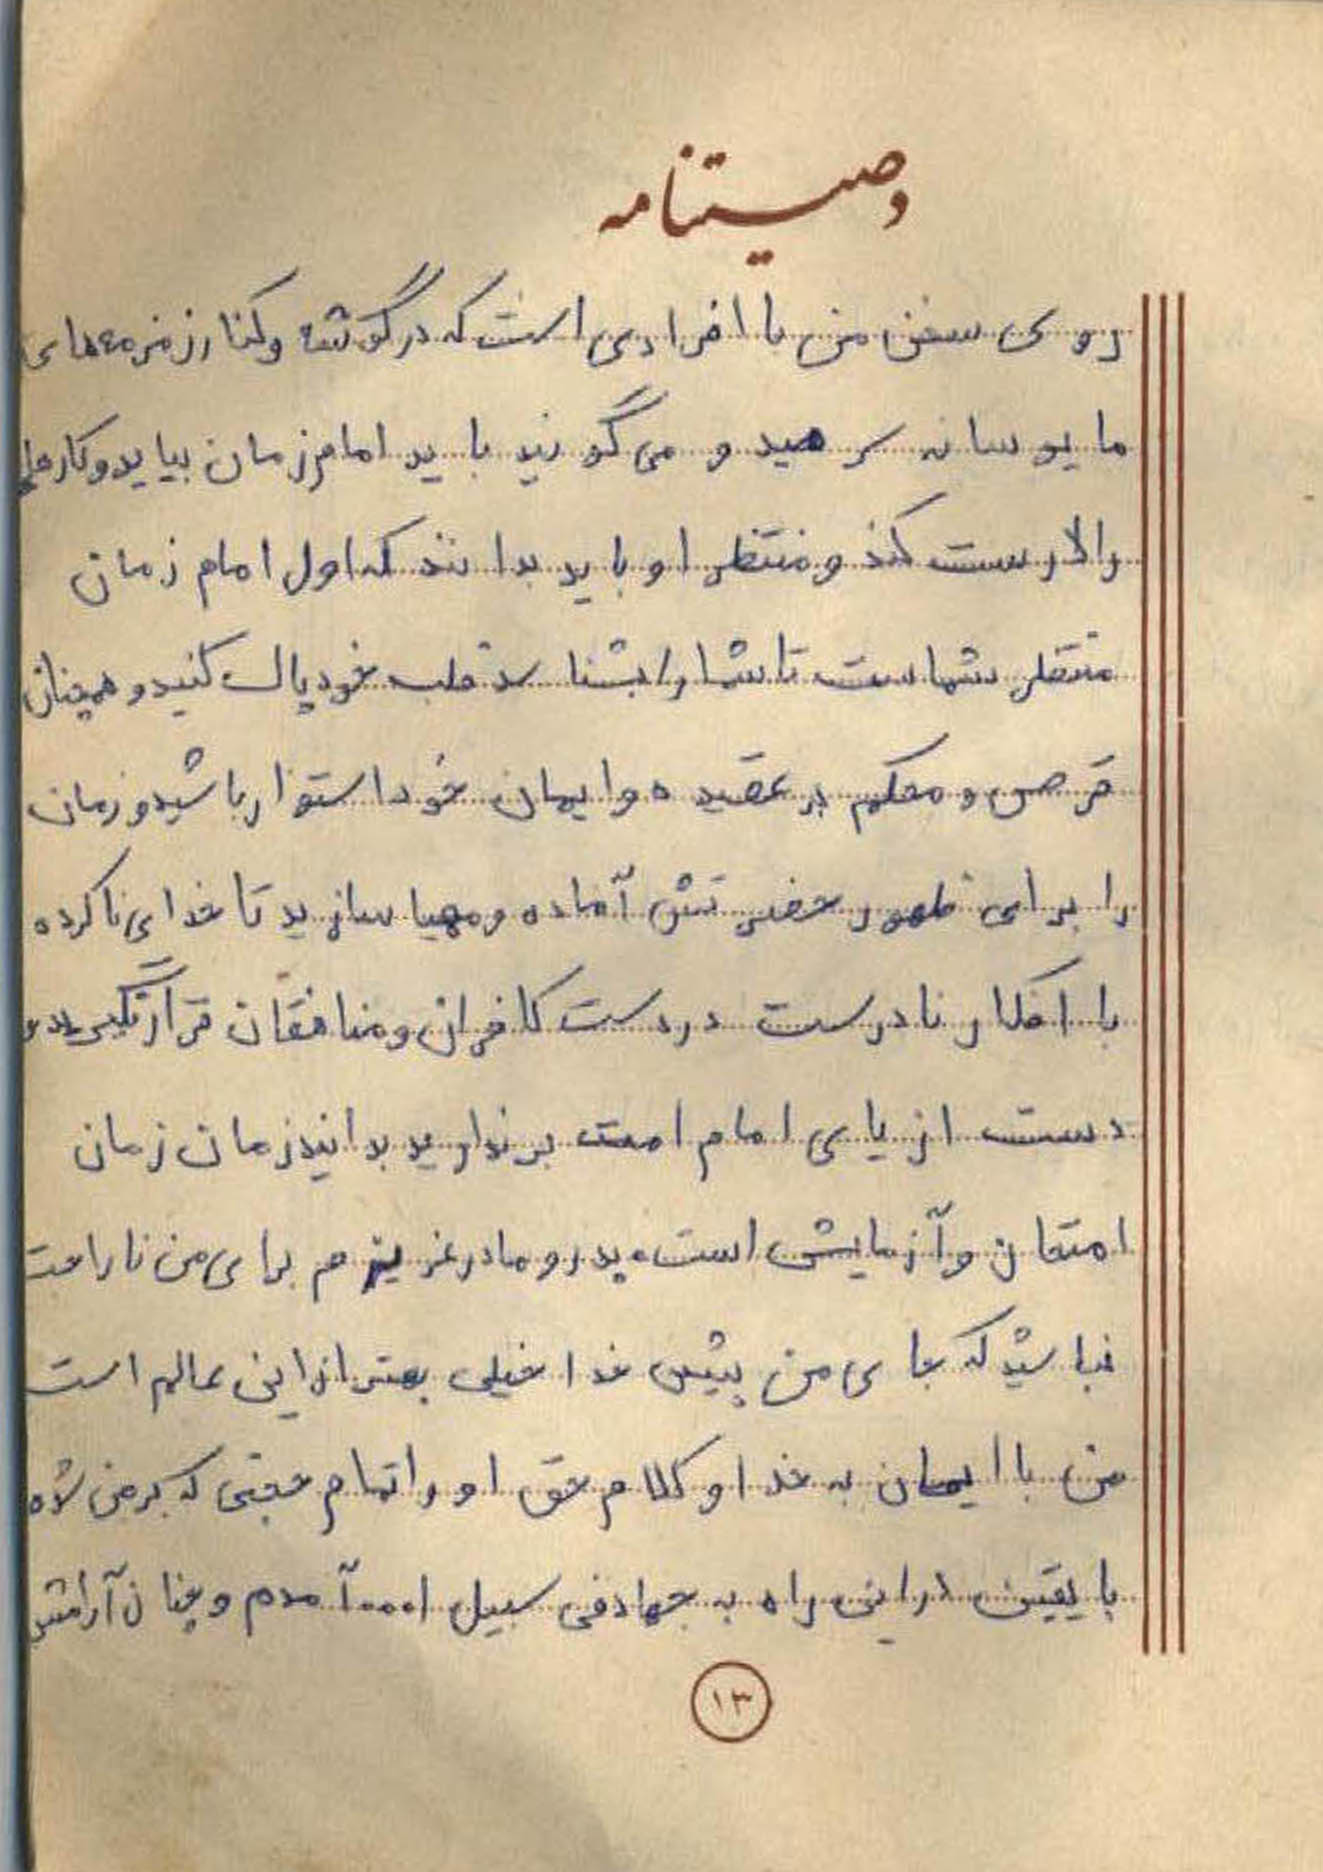 وصیتنامه
روی سخن من با افرادی است که در گوشه و کنار زمزمه های
مایوسانه سر میدهد و می گویند باید امام زمان بیاید و کار
را درست کند و منتظر او باید بدانند که اول امام زمان
منتظر شماست تا شما را بشناسد قلب خود پاک کنید و همچنان
قرص و محکم بر عقیده و ایمان خود استوار باشید و زمان
را برای ظهور حضرتش آماده و مهیا سازید تا خدای ناکرده
با افکار نادرست در دست کافران و منافقان قرار نگیرید و
دست از یاری امام امت برندارید بدانید زمان زمان
امتحان و آزمایش است. پدر و مادر عزیزم برای من ناراحت
نباشید که جای من پیش خدا خیلی بهتر از این عالم است
من با ایمان به خدا و کلام حق او و اتمام حجتی که بر من شده
با یقین در این راه به جهاد فی سبیل ا... آمدم و چنان آرامش
۱۳